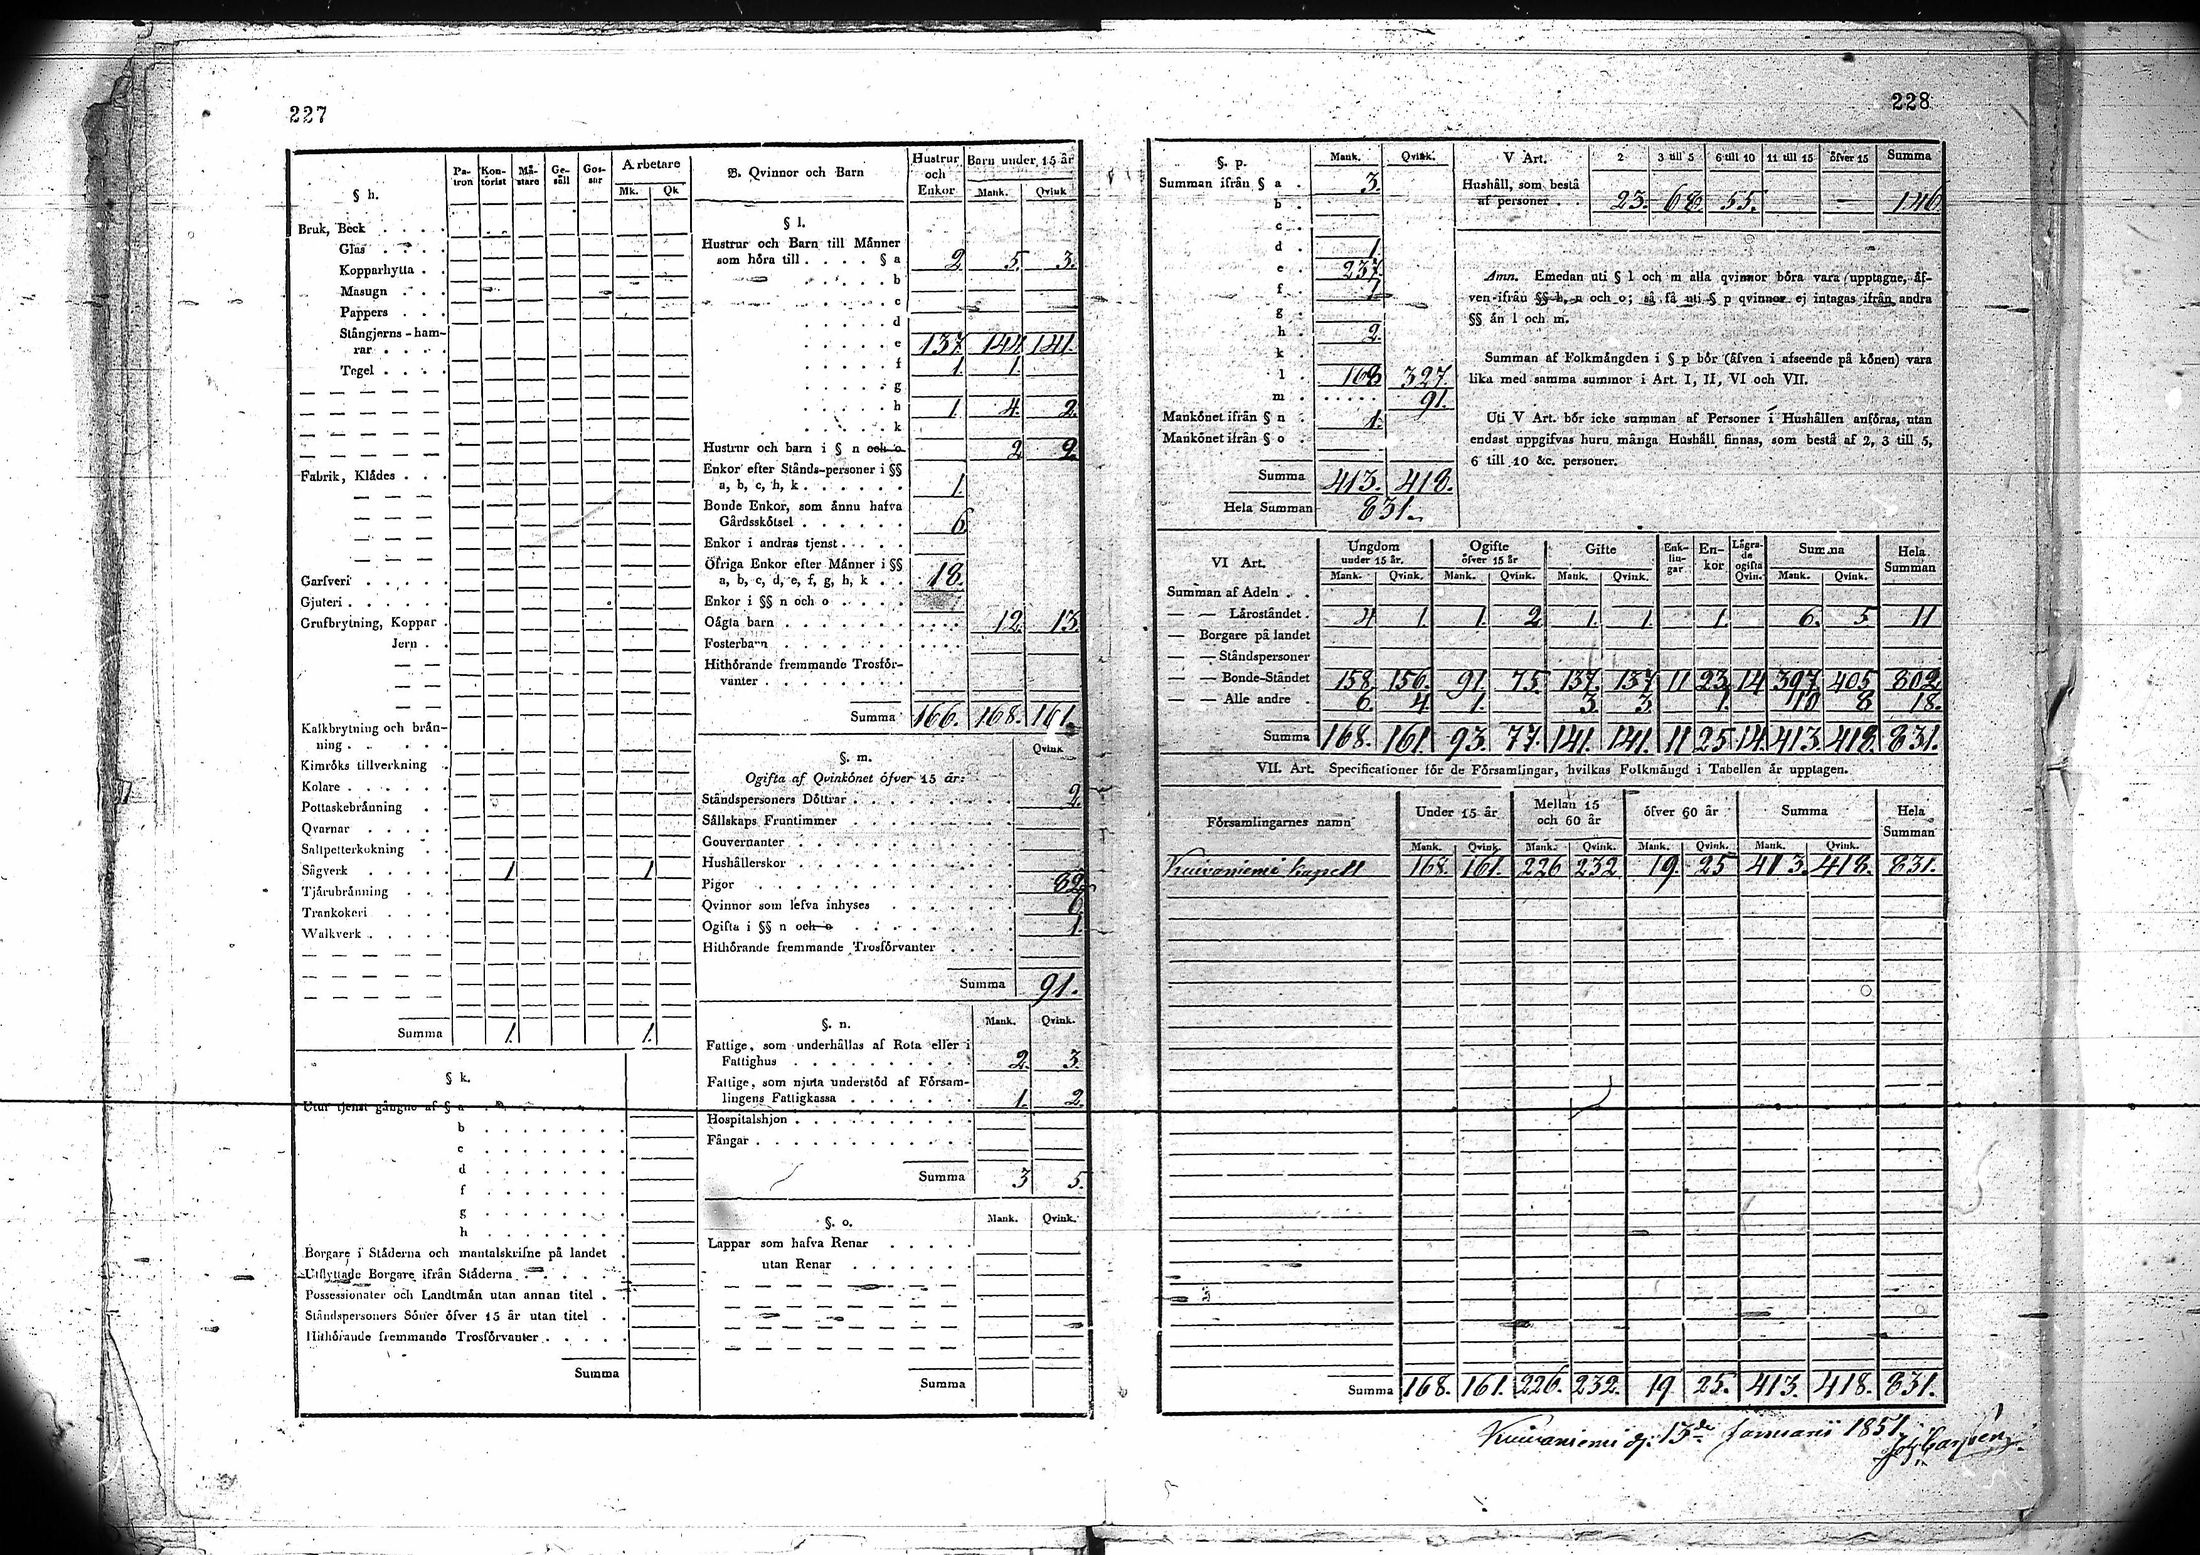 227
§ h.
Pa-tron Kon-torist Må-stare Ge-säll Gos-sar Arbetare
Mk. Qk
Bruk, Beck . . . .
Glas . . . .
Kopparhytta . .
Masugn . . .
Pappers . . .
Stångjerns-ham-
rar . . . .
Tegel . . . .
Fabrik, Klådes . . .
Garfveri . . . . .
Gjuteri . . . . . .
Grufbrytning, Koppar .
Jern . .
Kalkbrytning och brån-
ning . . . . .
Kimröks tillverkning .
Kolare . . . . . .
Pottaskebrånning . .
Qvarnar . . . . .
Saltpetterkokning . .
Sågverk . . . . . 1 1
Tjårubrånning . . .
Trankokeri . . . .
Walkverk . . . . .
Summa 1. 1.
§ k.
Utur tjenst gångne af § a . . . . . . .
b . . . . . . .
c . . . . . . .
d . . . . . . .
f . . . . . . .
g . . . . . . .
h . . . . . . .
Borgare i Ståderna och mantalskrifne på landet .
Utflyttade Borgare ifrån Ståderna . . . . .
Possessionater och Landtmån utan annan titel . .
Ståndspersoners Söner öfver 15 år utan titel . .
Hithörande fremmande Trosförvanter . . . . .
Summa
B. Qvinnor och Barn
Hustrur och Enkor
Barn under 15 år
Mank. Qvink
§ l.
Hustrur och Barn till Månner
som höra till . . . . § a 2 5. 3.
b
c
d
. . . . . e 137 144 141.
. . . . . f 1. 1.
. . . . . g
. . . . . h 1. 4. 2.
. . . . . k
Hustrur och barn i § n och o 2 2.
Enkor efter Stånds-personer i §§
a, b, c, h, k . . . . . . 1.
Bonde Enkor, som ånnu hafva
Gårdsskötsel . . . . . . 6
Enkor i andras tjenst . . . .
Öfriga Enkor efter Månner i §§
a, b, c, d, e, f, g, h, k . . 18.
Enkor i §§ n och o . . . .
Oågta barn . . . . . . . 12. 13.
Fosterbarn . . . . . . .
Hithörande fremmande Trosför-
vanter . . . . . . . .
Summa 166. 168. 161.
§. m.
Qvink
Ogifta af Qvinkönet öfver 15 år:
Ståndspersoners Döttrar . . . . . . . . 2.
Sållskaps Fruntimmer . . . . . . . .
Gouvernanter . . . . . . . . . .
Hushållerskor . . . . . . . . . .
Pigor . . . . . . . . . . . . 82
Qvinnor som lefva inhyses . . . . . . 6
Ogifta i §§ n och o . . . . . . . . 1.
Hithörande fremmande Trosförvanter . . . .
Summa 91.
§. n.
Mank. Qvink.
Fattige, som underhållas af Rota eller i
Fattighus . . . . . . . . . 2. 3.
Fattige, som njuta understöd af Försam-
lingens Fattigkassa . . . . . . . 1. 2.
Hospitalshjon . . . . . . . . . .
Fångar . . . . . . . . . . . .
Summa 3 5.
§. o.
Mank. Qvink.
Lappar som hafva Renar . . . . .
utan Renar . . . . . .
Summa
228
§. p.
Mank. Qvink.
Summan ifrån § a . 3.
b .
c .
d . 1.
e . 237.
f . 1
g .
h . 2.
k .
l . 168 327.
m . . . . . . 91.
Mankönet ifrån § n . 1.
Mankönet ifrån § o .
Summa 413. 418.
Hela Summan 831.
V Art. 2 3 till 5 6 till 10 11 till 15 öfver 15 Summa
Hushåll, som bestå
af personer . . 23. 68. 55. — 146.
Anm. Emedan uti § l och m alla qvinnor böra vara upptagne, åf-
ven ifrån §§ h, n och o; så få uti § p qvinnor ej intagas ifrån andra
§§ ån l och m.
Summan af Folkmångden i § p bör (åfven i afseende på könen) vara
lika med samma summor i Art. I, II, VI och VII.
Uti V Art. bör icke summan af Personer i Hushållen anföras, utan
endast uppgifvas huru många Hushåll finnas, som bestå af 2, 3 till 5,
6 till 10 &c. personer.
VI Art.
Ungdom under 15 år. Ogifte öfver 15 år Gifte Enk-lin-gar En-kor Lågra-de ogifta Qvin. Summa Hela Summan
Mank. Qvink. Mank. Qvink. Mank. Qvink. Mank. Qvink.
Summan af Adeln . .
— — Låroståndet . 4 1 1. 2 1. 1. 1. 6. 5. 11
— Borgare på landet
— — Ståndspersoner
— — Bonde-Ståndet 158 156. 91. 75. 137. 137 11 23. 14 397 405 802.
— — Alle andre . 6 4. 1. 3. 3. 1. 10 8 18.
Summa 168. 161. 93. 77. 141. 141. 11 25 14. 413. 418. 831.
VII. Art. Specificationer för de Församlingar, hvilkas Folkmångd i Tabellen år upptagen.
Församlingarnes namn Under 15 år Mellan 15 och 60 år öfver 60 år Summa Hela Summan
Mank. Qvink Mank. Qvink. Mank. Qvink. Mank. Qvink.
Kuivaniemi kapell 168. 161. 226 232 19. 25 413. 418. 831.
Summa 168. 161. 226. 232. 19 25. 413. 418. 831.
Kuivaniemi d: 13de Januarii 1851.